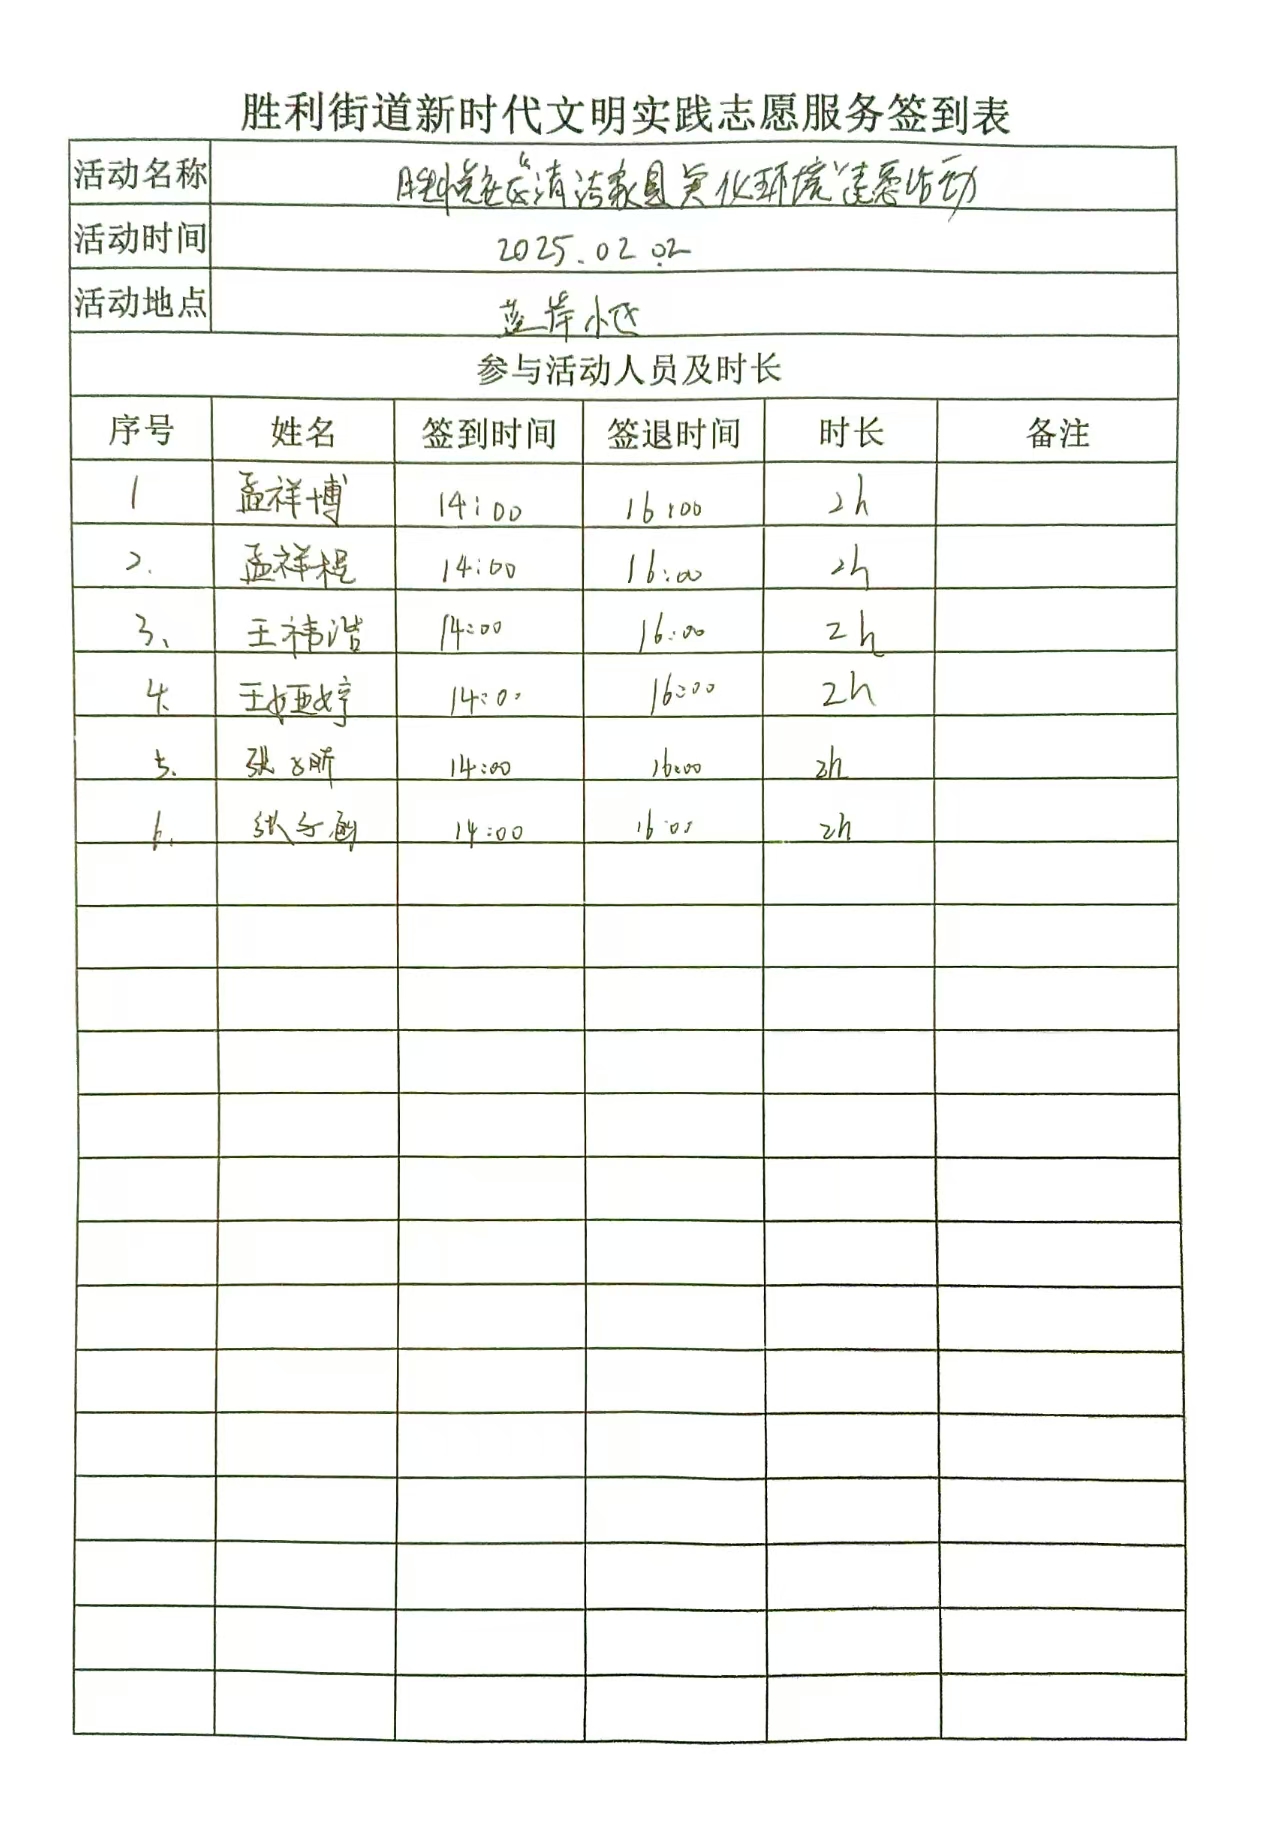 胜利街道新时代文明实践志愿服务签到表
活动名称 "清洁家园美化环境"志愿活动
活动时间 2025.02.02
活动地点 蓝岸小区
参与活动人员及时长
序号 姓名 签到时间 签退时间 时长 备注
1 孟祥博 14:00 16:00 2h
2. 孟祥程 14:00 16:00 2h
3、 王祎浩 14:00 16:00 2h
4. 王娅婷 14:00 16:00 2h
5、 张 14:00 16:00 2h
6. 张子涵 14:00 16:00 2h